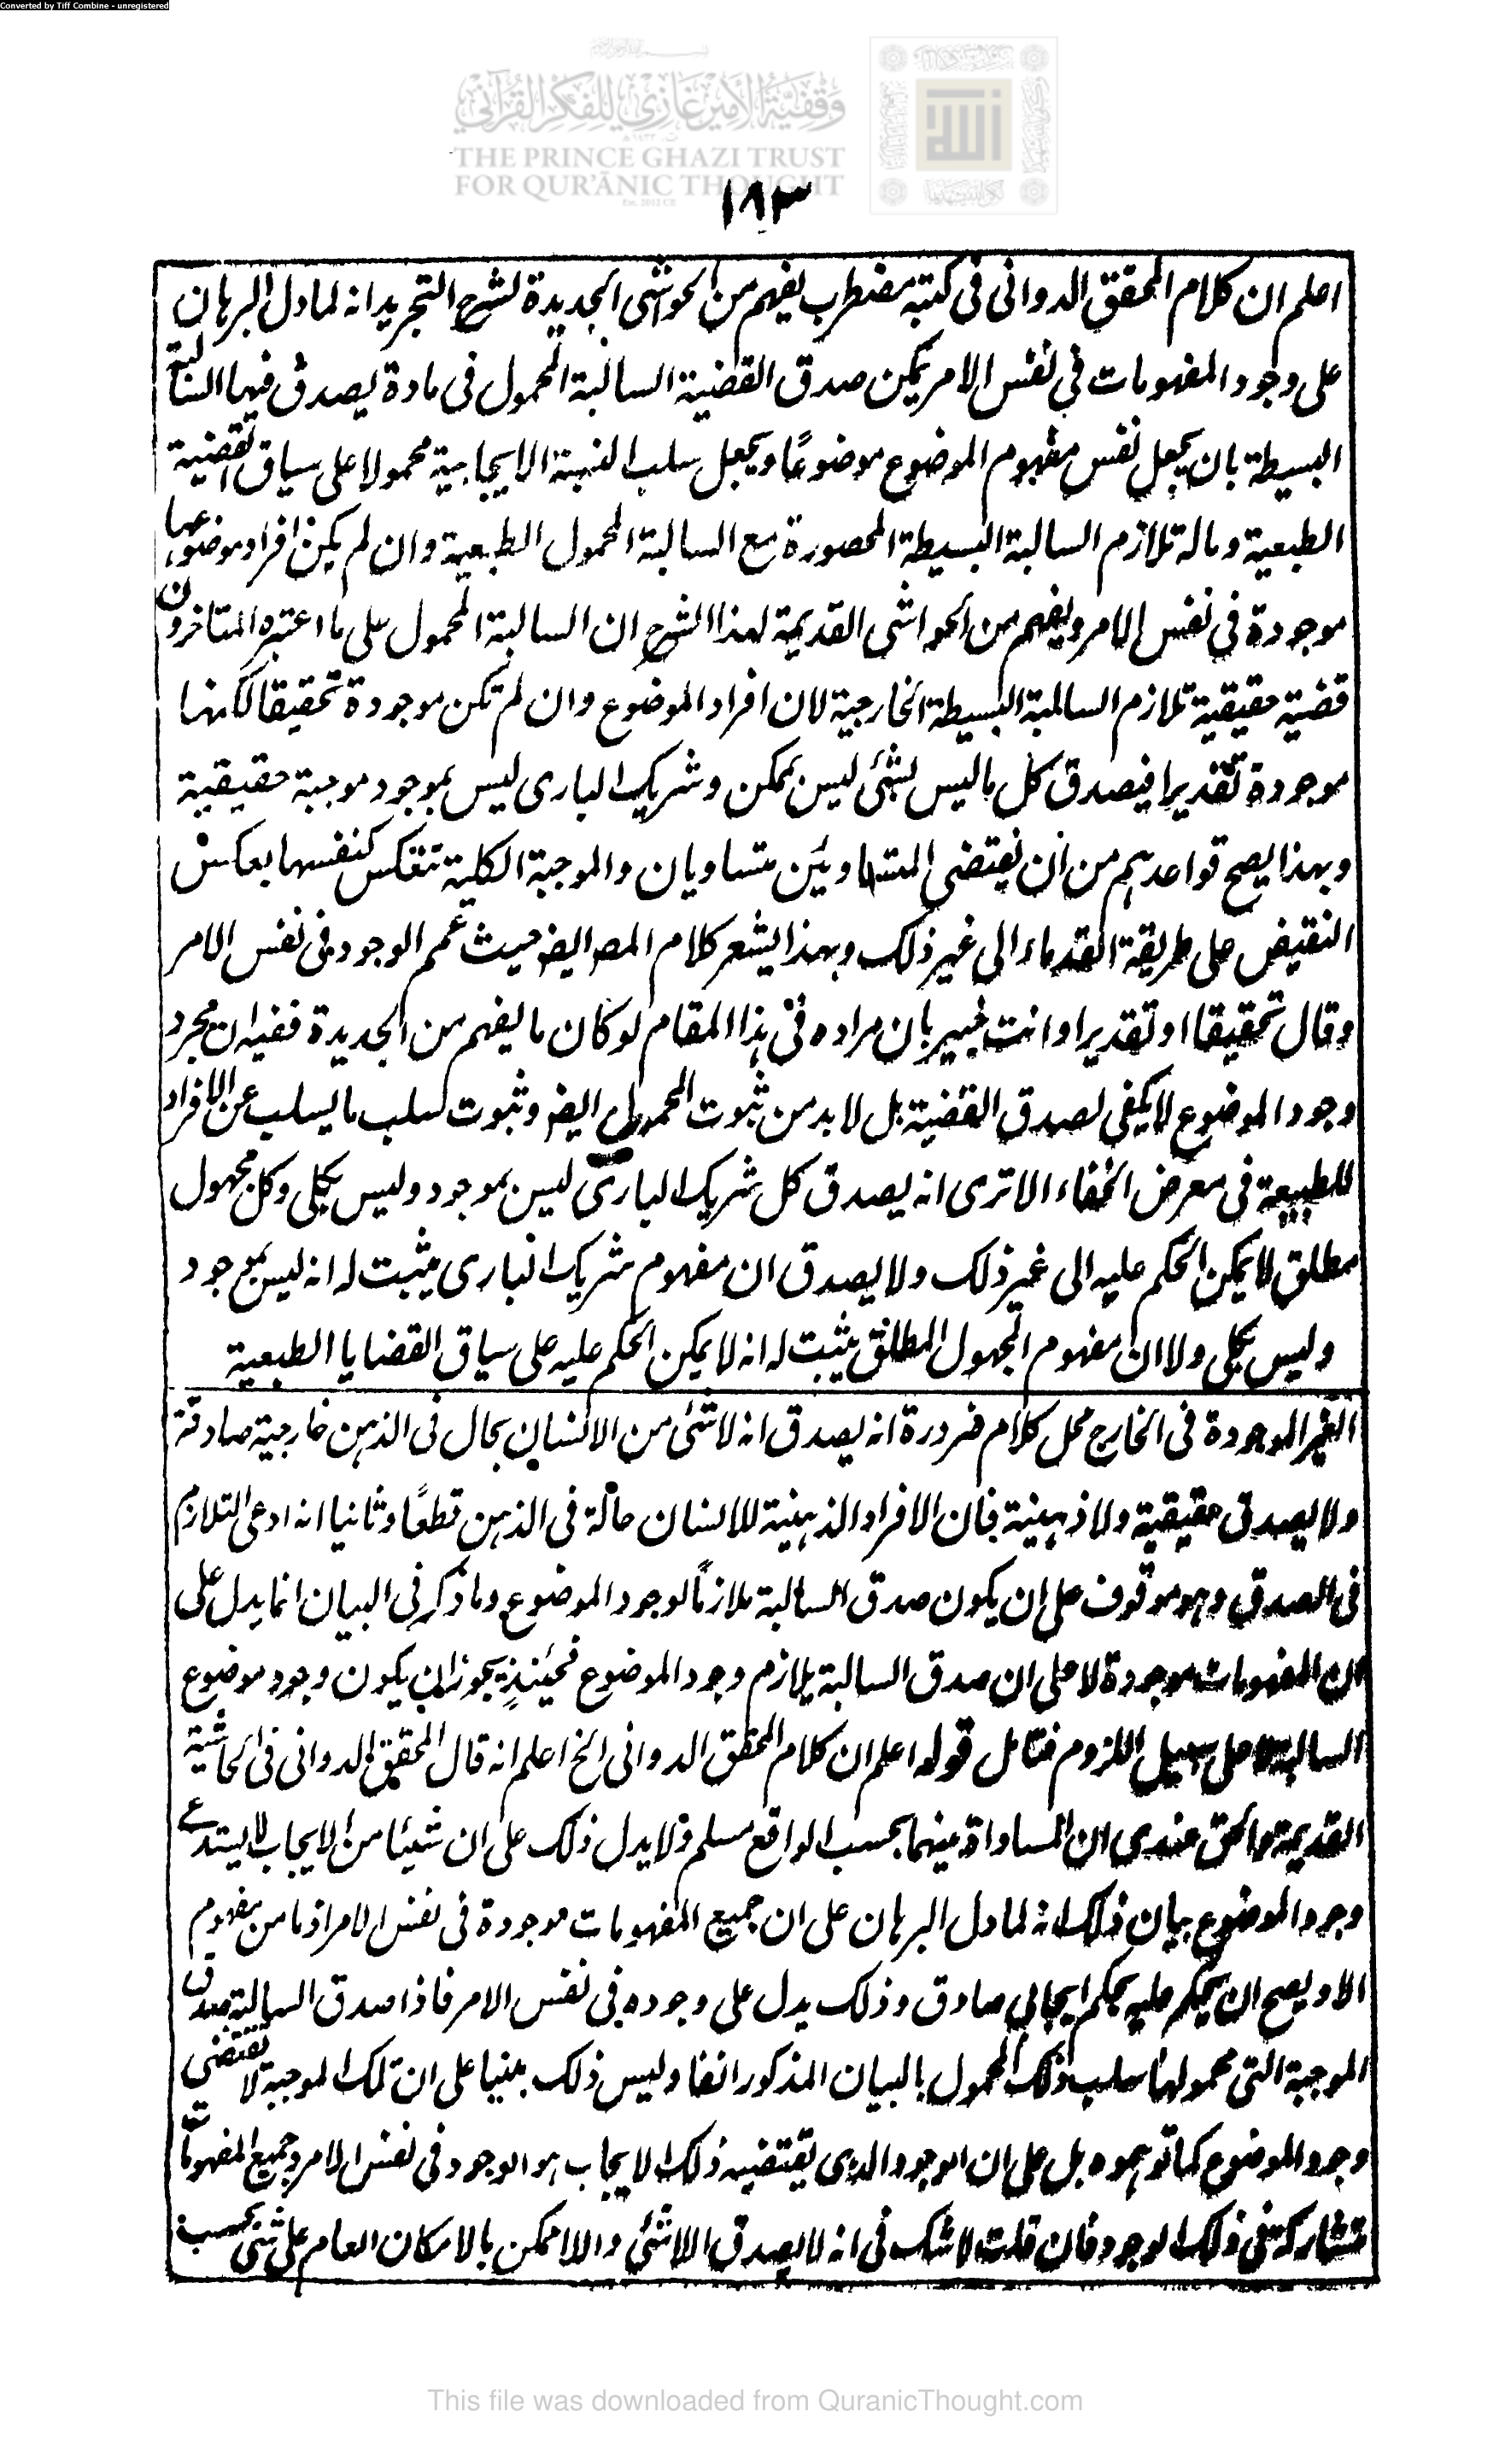 Converted by Tiff Combine - unregistered
وقفية الأمير غازي للفكر القرآني
THE PRINCE GHAZI TRUST
FOR QUR'ĀNIC THOUGHT
Est. 2012 CE
١٨٣
اعلم ان كلام المحقق الدوانی فی كتبه مضطرب يفهم من الحواشی الجديدة لشرح التجريد انه لما دل البرهان
علی وجود المفهومات فی نفس الامر يمكن صدق القضية السالبة المحمول فی مادة يصدق فيها السالبة
البسيطة بان يجعل نفس مفهوم الموضوع موضوعًا ويجعل سلب النسبة الايجابية محمولا علی سياق القضية
الطبعية وماله تلازم السالبة البسيطة المحصورة مع السالبة المحمول الطبعية وان لم يكن افراد موضوعها
موجودة فی نفس الامر ويفهم من الحواشی القديمة لهذا الشرح ان السالبة المحمول علی ما اعتبره المتاخرون
قضية حقيقية تلازم السالبة البسيطة الخارجية لان افراد الموضوع وان لم تكن موجودة تحقيقا لكنها
موجودة تقديرا فيصدق كل ما ليس بشئ ليس بممكن وشريك الباری ليس بموجود موجبة حقيقية
وبهذا يصح قواعدهم من ان نقيضی المتساويين متساويان والموجبة الكلية تنعكس كنفسها بعكس
النقيض علی طريقة القدماء الی غير ذلك وبهذا يشعر كلام المص ايضا حيث عمم الوجود فی نفس الامر
وقال تحقيقا او تقديرا وانت خبير بان مراده فی هذا المقام لو كان ما يفهم من الجديدة ففيه ان مجرد
وجود الموضوع لا يكفی لصدق القضية بل لا بد من ثبوت المحمول ايضا وثبوت سلب ما يسلب عن الافراد
للطبيعة فی معرض الخفاء الا تری انه يصدق كل شريك الباری ليس بموجود وليس بكلی وكل مجهول
مطلق لا يمكن الحكم عليه الی غير ذلك ولا يصدق ان مفهوم شريك الباری يثبت له انه ليس بموجود
وليس بكلی ولا ان مفهوم المجهول المطلق يثبت له انه لا يمكن الحكم عليه علی سياق القضايا الطبعية
الغير الموجودة فی الخارج محل كلام ضرورة انه يصدق انه لا شئ من الانسان بحال فی الذهن خارجية صادقة
ولا يصدق حقيقية ولا ذهنية فان الافراد الذهنية للانسان حالة فی الذهن قطعًا وثانيا انه ادعی التلازم
فی الصدق وهو موقوف علی ان يكون صدق السالبة ملازمًا لوجود الموضوع وما ذكر فی البيان انما يدل علی
ان المفهومات موجودة لا علی ان صدق السالبة يلازم وجود الموضوع فحينئذٍ يجوز ان يكون وجود موضوع
السالبة لا علی سبيل اللزوم فتامل قوله اعلم ان كلام المحقق الدوانی الخ اعلم انه قال المحقق الدوانی فی الحاشية
القديمة والحق عندی ان المساواة بينهما بحسب الواقع مسلم ولا يدل ذلك علی ان شيئا من الايجاب لا يستدعی
وجود الموضوع بيان ذلك انه لما دل البرهان علی ان جميع المفهومات موجودة فی نفس الامر اذ ما من مفهوم
الا و يصح ان يحكم عليه بحكم ايجابی صادق وذلك يدل علی وجوده فی نفس الامر فاذا صدق السالبة صدق
الموجبة التی محمولها سلب ذلك المحمول بالبيان المذكور انفا وليس ذلك مبنيا علی ان تلك الموجبة لا تقتضی
وجود الموضوع كما توهموه بل علی ان الوجود الذی يقتضيه ذلك الايجاب هو الوجود فی نفس الامر وجميع المفهومات
متشاركة فی ذلك الوجود فان قلت لا شك فی انه لا يصدق اللاشئ واللاممكن بالامكان العام علی شئ بحسب
This file was downloaded from QuranicThought.com